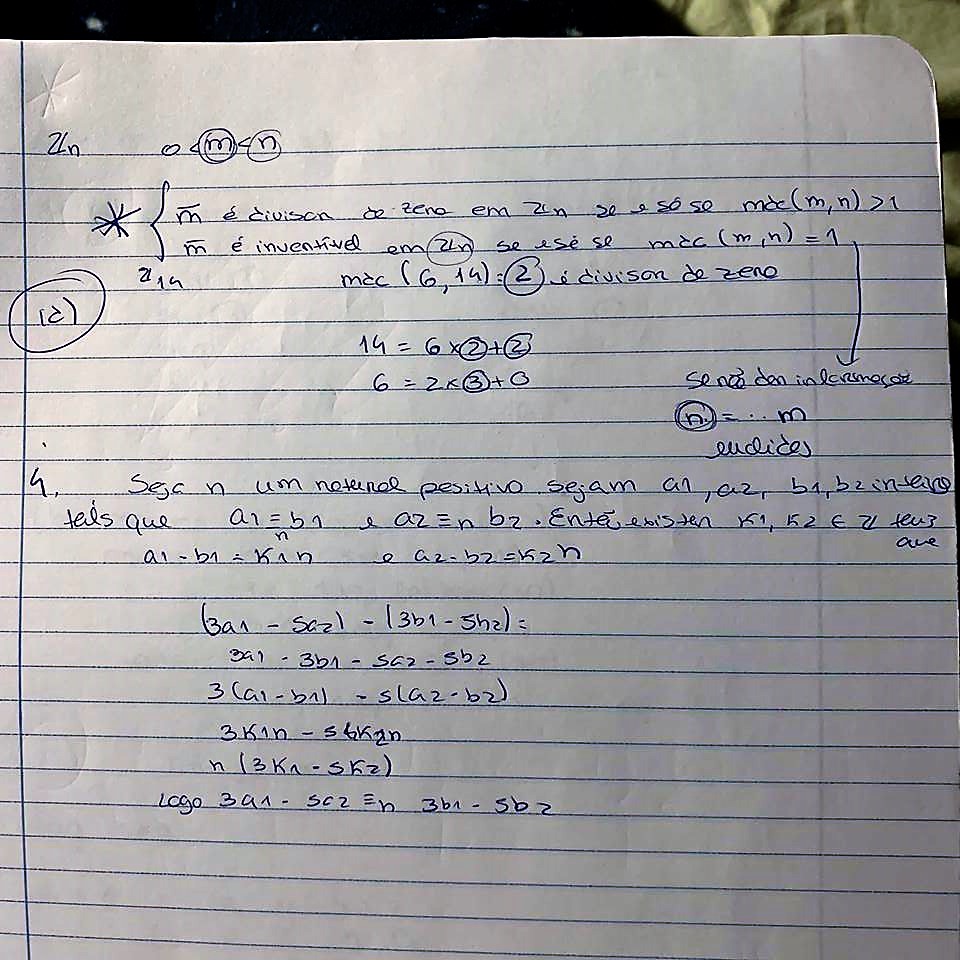 ℤn 0 < m < n
* { m̄ é divisor de zero em ℤn se e só se mdc (m, n) > 1
m̄ é invertível em ℤn se e só se mdc (m, n) = 1
ℤ14 mdc (6, 14) = 2 é divisor de zero
14 = 6 × 2 + 2
6 = 2 × 3 + 0
se não der informação
n = .. m
euclides
4. Seja n um natural positivo. sejam a1, a2, b1, b2 inteiros
tais que a1 ≡n b1 e a2 ≡n b2. Então, existem K1, K2 ∈ ℤ tais
que
a1 - b1 = K1 n e a2 - b2 = K2 n
(3a1 - 5a2) - (3b1 - 5b2) =
3a1 - 3b1 - 5a2 - 5b2
3(a1 - b1) - 5(a2 - b2)
3K1n - 5K2n
n (3K1 - 5K2)
Logo 3a1 - 5a2 ≡n 3b1 - 5b2